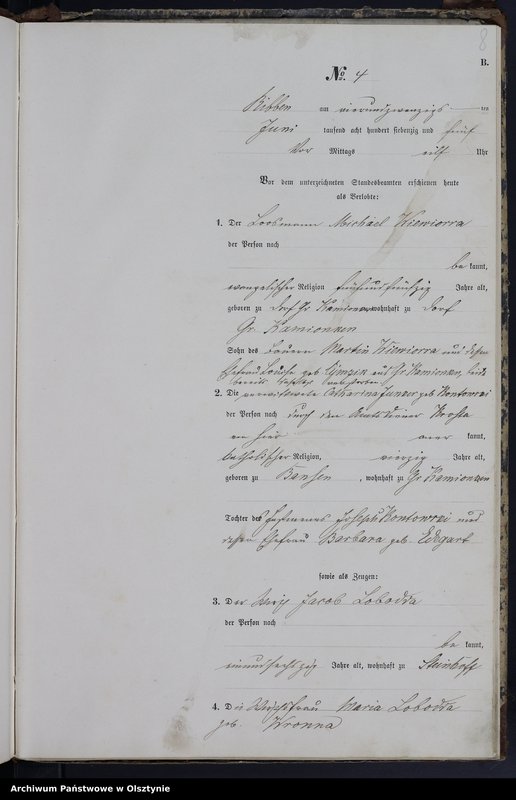 8
B.
No. 4
Ribben am vierundzwanzigs ten
Juni tausend acht hundert siebenzig und fünf
Vor Mittags eilf Uhr
Vor dem unterzeichneten Standesbeamten erschienen heute
als Verlobte:
1. Der Loosmann Michael Kiewiorra
der Person nach
be kannt,
evangelischer Religion fünfundfünfzig Jahre alt,
geboren zu Dorf Gr. Kamionken wohnhaft zu Dorf
Gr. Kamionken
Sohn des Bauern Martin Kiewiorra und dessen
Ehefrau Louise geb. aus Gr. Kamionken, beide
bereits verstorben
2. Die verwittwete Catharina Junker geb. Kontowski
der Person nach durch den Amtsdiener
aner kannt,
katholischer Religion, vierzig Jahre alt,
geboren zu Bansen, wohnhaft zu Gr. Kamionken
Tochter des Joseph Kontowski und
dessen Ehefrau Barbara geb.
sowie als Zeugen:
3. Der Wirth Jacob Lobodda
der Person nach
be kannt,
einundsechszig Jahre alt, wohnhaft zu Steinhof
4. Die Wirthsfrau Maria Lobodda
geb. Wronna
Archiwum Państwowe w Olsztynie